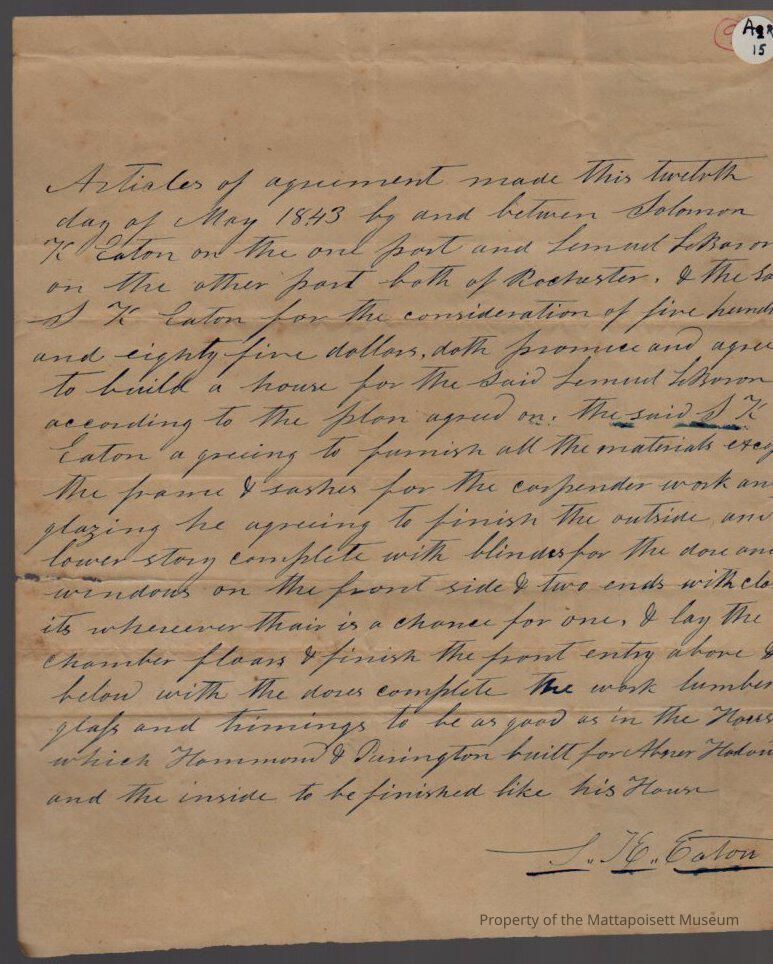 AGR
15
Articles of agreement made this twelvth
day of May 1843 by and betwen Solomon
K Eaton on the one part and Lemuel LeBaron
on the other part both of Rochester. & the sa
S K Eaton for the consideration of five hund
and eighty five dollars, doth promice and agree
to build a house for the said Lemuel LeBaron
according to the plan agreed on. the said S K
Eaton agreeing to furnish all the materials excep
the frame & sashes for the carpender work an
glazing he agreeing to finish the outside an
lower story complete with blinds for the dore an
windows on the front side & two ends with clo
its whereever thair is a chance for one, & lay the
chamber floars & finish the front entry above &
below with the dores complete the work lumber
glass and trimings to be as good as in the Hous
which Hammond & Purington built for Abner
and the inside to be finished like his House
S. K. Eaton
Property of the Mattapoisett Museum